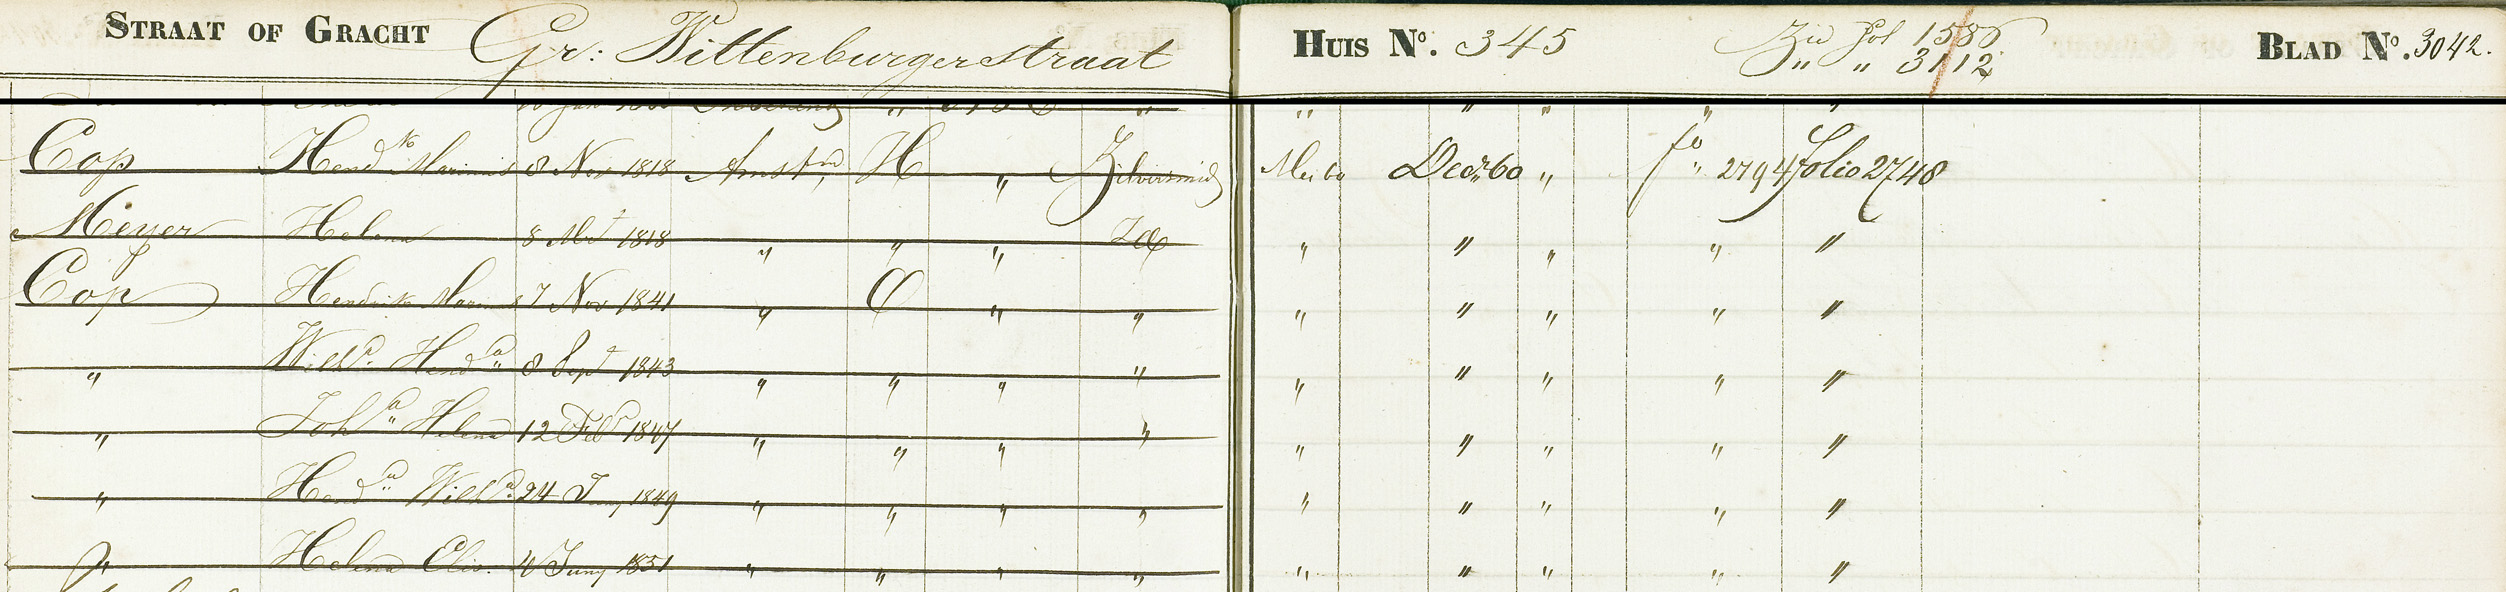 STRAAT OF GRACHT Gr: Wittenburgerstraat HUIS No. 345 Zie fol 1586 BLAD No. 3042.
" " 3112
Cop Hendks Marinus 8 Nov 1818 Amstm, H " Zilversmid Mei 60 Decr 60 " fo 2794 folio 2748
Meyer Helena 8 Mrt 1818 " " " " " " " "
Cop Hendrik Marinus 7 Nov 1841 " O " " " " " " "
" Willa Henda 8 Sept 1843 " " " " " " " " "
" Joha Helena 12 Febr 1847 " " " " " " " " "
" Henda Willa 24 1849 " " " " " " " " "
" Helena Elis. Juny 1851 " " " " " " " " "